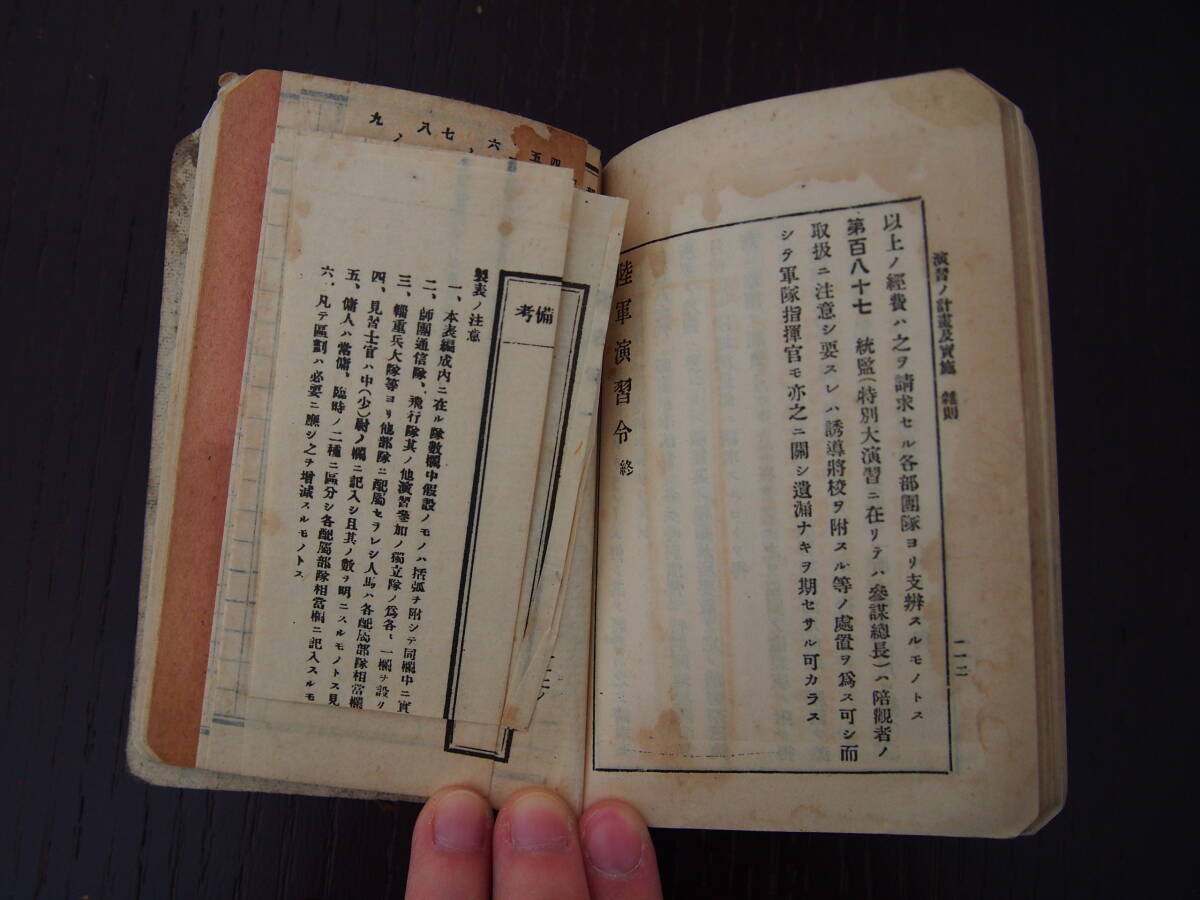 演習ノ計畫及實施　雜則
以上ノ經費ハ之ヲ請求セル各部團隊ヨリ支辨スルモノトス
第百八十七　統監(特別大演習ニ在リテハ參謀總長)ハ陪觀者ノ
取扱ニ注意シ要スレハ誘導將校ヲ附スル等ノ處置ヲ爲ス可シ而
シテ軍隊指揮官モ亦之ニ關シ遺漏ナキヲ期セサル可カラス
陸軍演習令 終
四
五
六
七
八
九
備考
製表ノ注意
一、本表編成内ニ在ル隊數欄中假設ノモノハ括弧ヲ附シテ同欄中ニ實
二、師團通信隊、飛行隊其ノ他演習參加ノ獨立隊ノ爲各、一欄ヲ設ク
三、輜重兵大隊等ヨリ他部隊ニ配屬セラレシ人馬ハ各配屬部隊相當欄
四、見習士官ハ中(少)尉ノ欄ニ記入シ且其ノ數ヲ明ニスルモノトス見
五、傭人ハ常傭、臨時ノ二種ニ區分シ各配屬部隊相當欄ニ記入スルモ
六、凡テ區劃ハ必要ニ應シ之ヲ增減スルモノトス